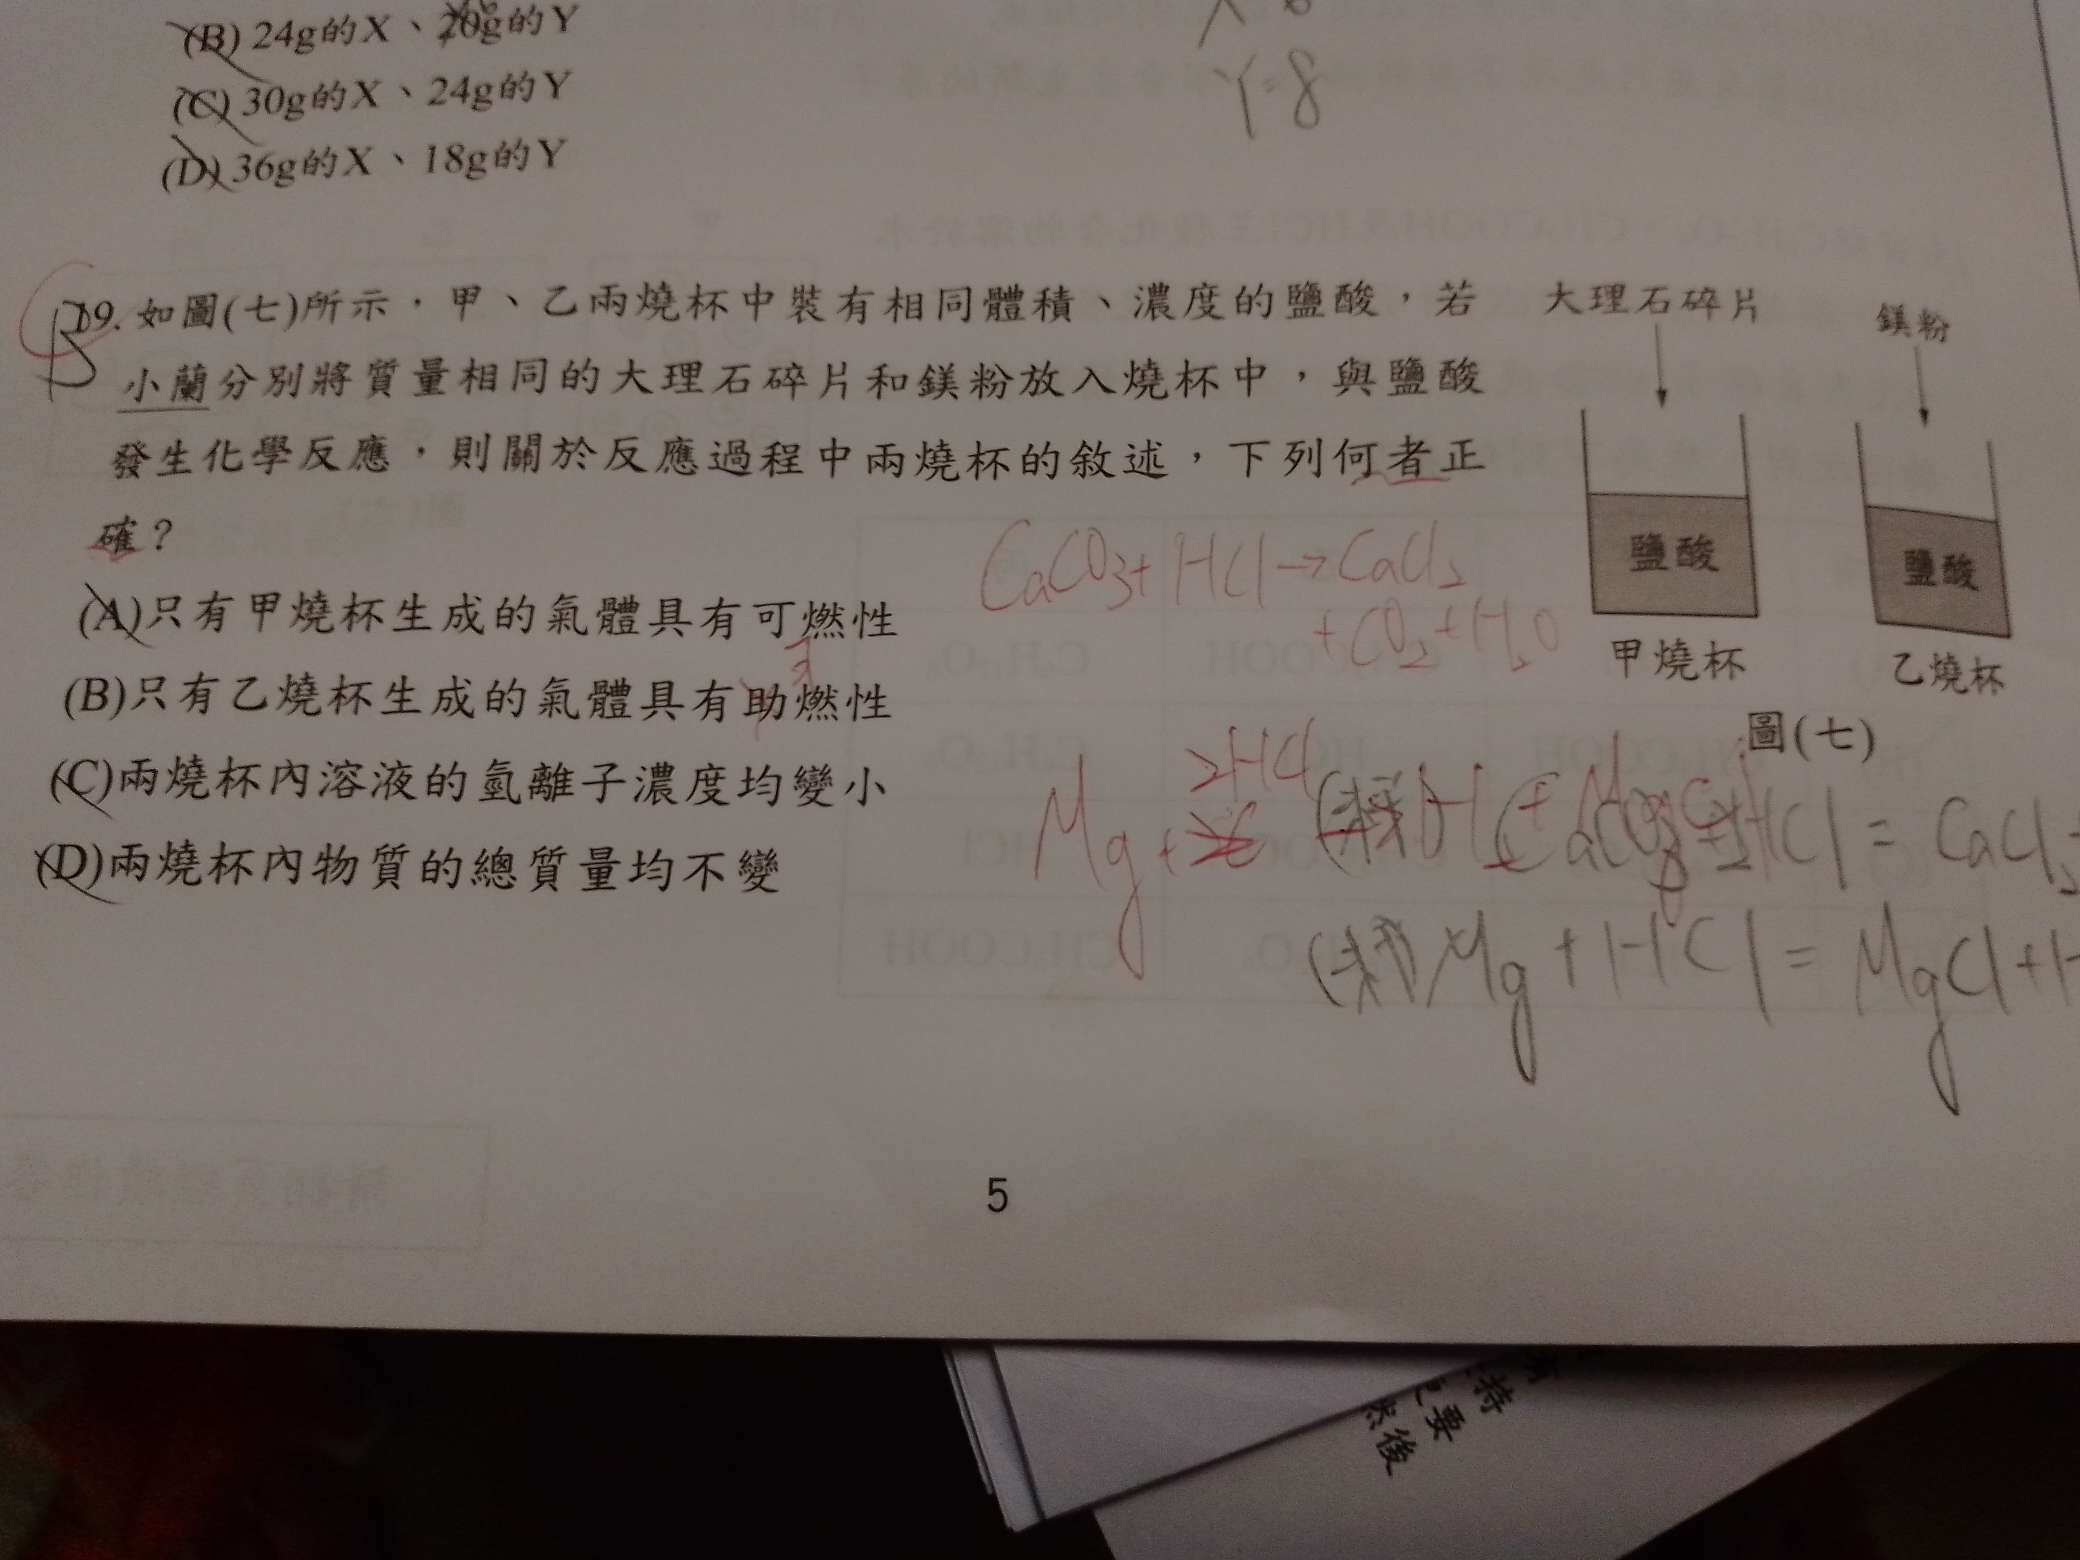 (B) 24g的X、20g的Y
(C) 30g的X、24g的Y
(D) 36g的X、18g的Y
Y=8
B
19. 如圖(七)所示，甲、乙兩燒杯中裝有相同體積、濃度的鹽酸，若
小蘭分別將質量相同的大理石碎片和鎂粉放入燒杯中，與鹽酸
發生化學反應，則關於反應過程中兩燒杯的敘述，下列何者正
確？
(A)只有甲燒杯生成的氣體具有可燃性
(B)只有乙燒杯生成的氣體具有助燃性
(C)兩燒杯內溶液的氫離子濃度均變小
(D)兩燒杯內物質的總質量均不變
大理石碎片
鎂粉
鹽酸
鹽酸
甲燒杯
乙燒杯
圖(七)
CaCO3+HCl→CaCl2
+CO2+H2O
可
Mg+
2HCl
HCl = CaCl2
Mg+HCl = MgCl+H
5